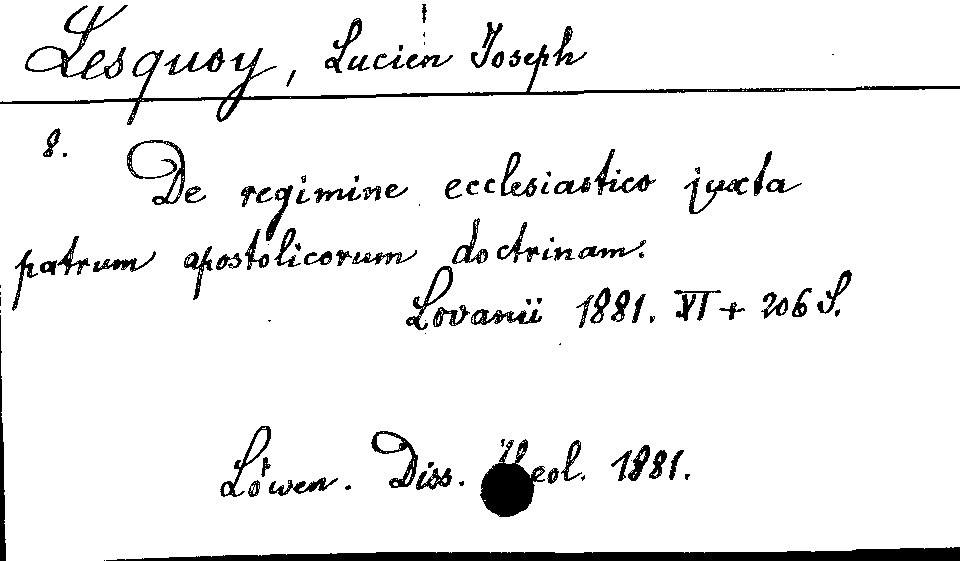 Lesquoy, Lucien Joseph
8.
De regimine ecclesiastico juxta
patrum apostolicorum doctrinam.
Lovanii 1881. VI + 206 S.
Löwen. Diss. theol. 1881.